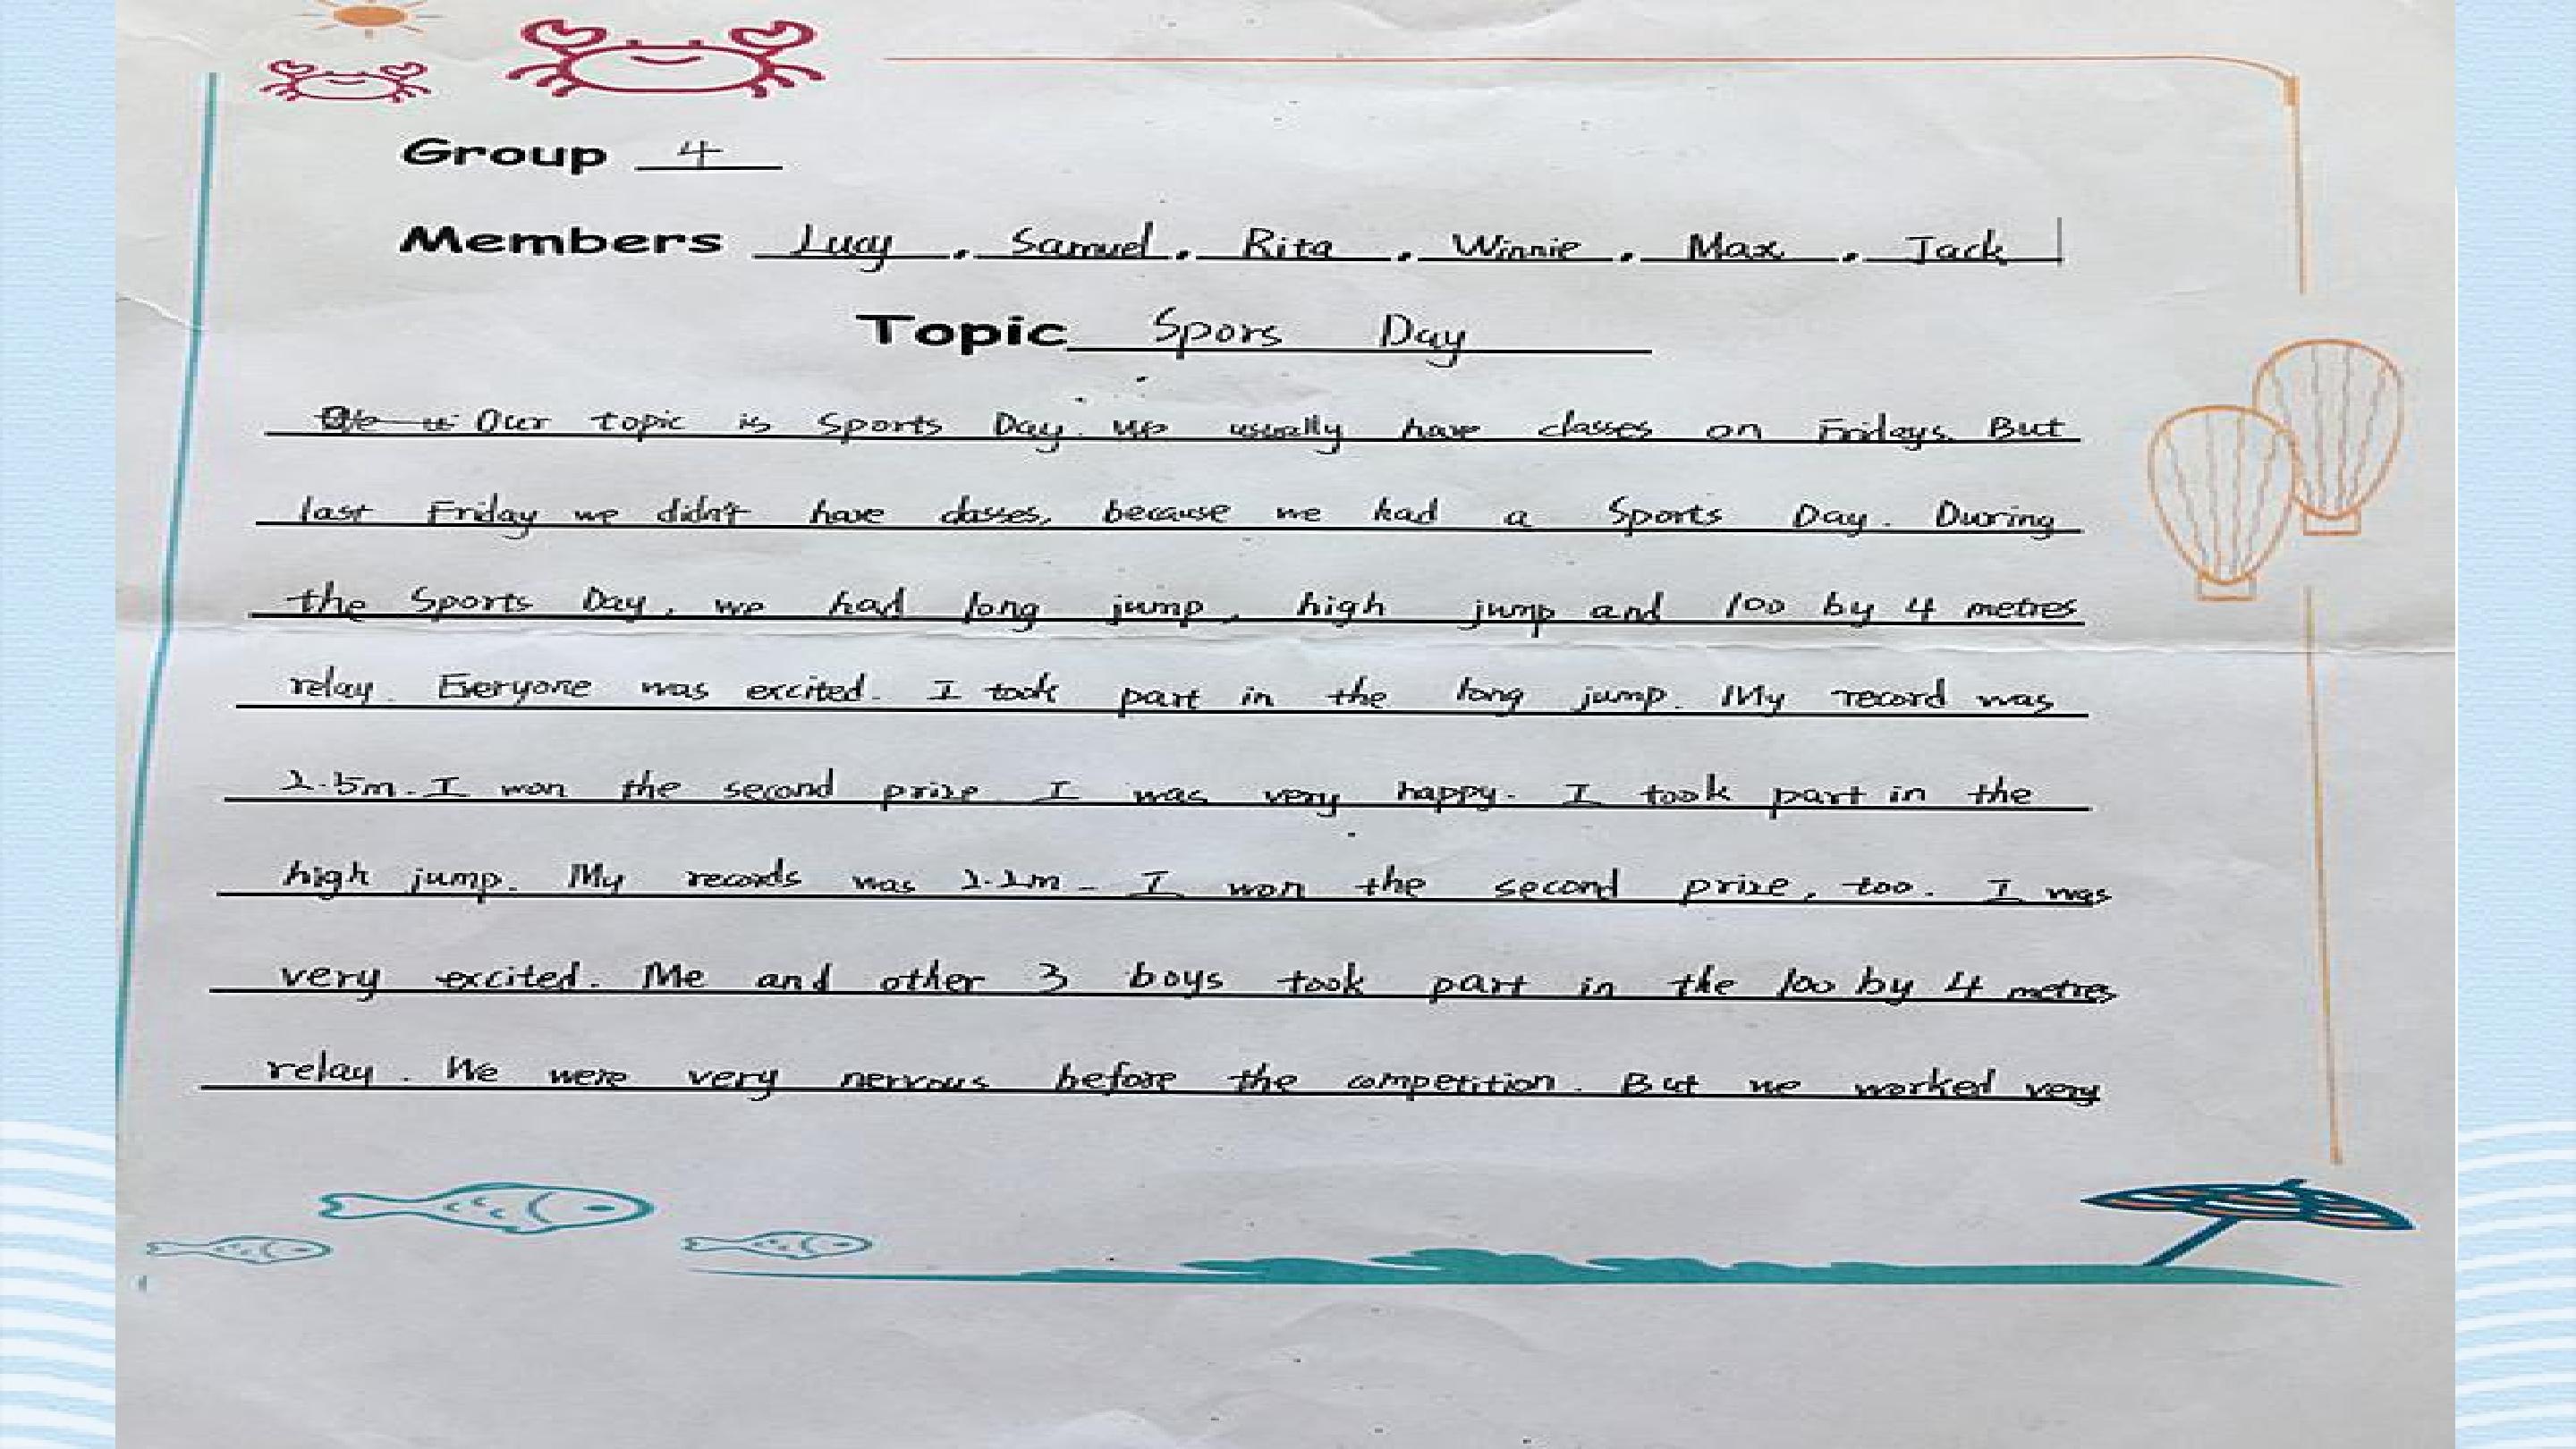 Group 4
Members Lucy, Samuel, Rita, Winnie, Max, Jack
Topic Spors Day
Our topic is Sports Day. We usually have classes on Fridays. But
last Friday we didn't have classes, because we had a Sports Day. During
the Sports Day, we had long jump, high jump and 100 by 4 metres
relay. Everyone was excited. I took part in the long jump. My record was
2.5m. I won the second prize. I was very happy. I took part in the
high jump. My records was I won the second prize, too. I was
very excited. Me and other 3 boys took part in the 100 by 4 metres
relay. We were very nervous before the competition. But we worked very